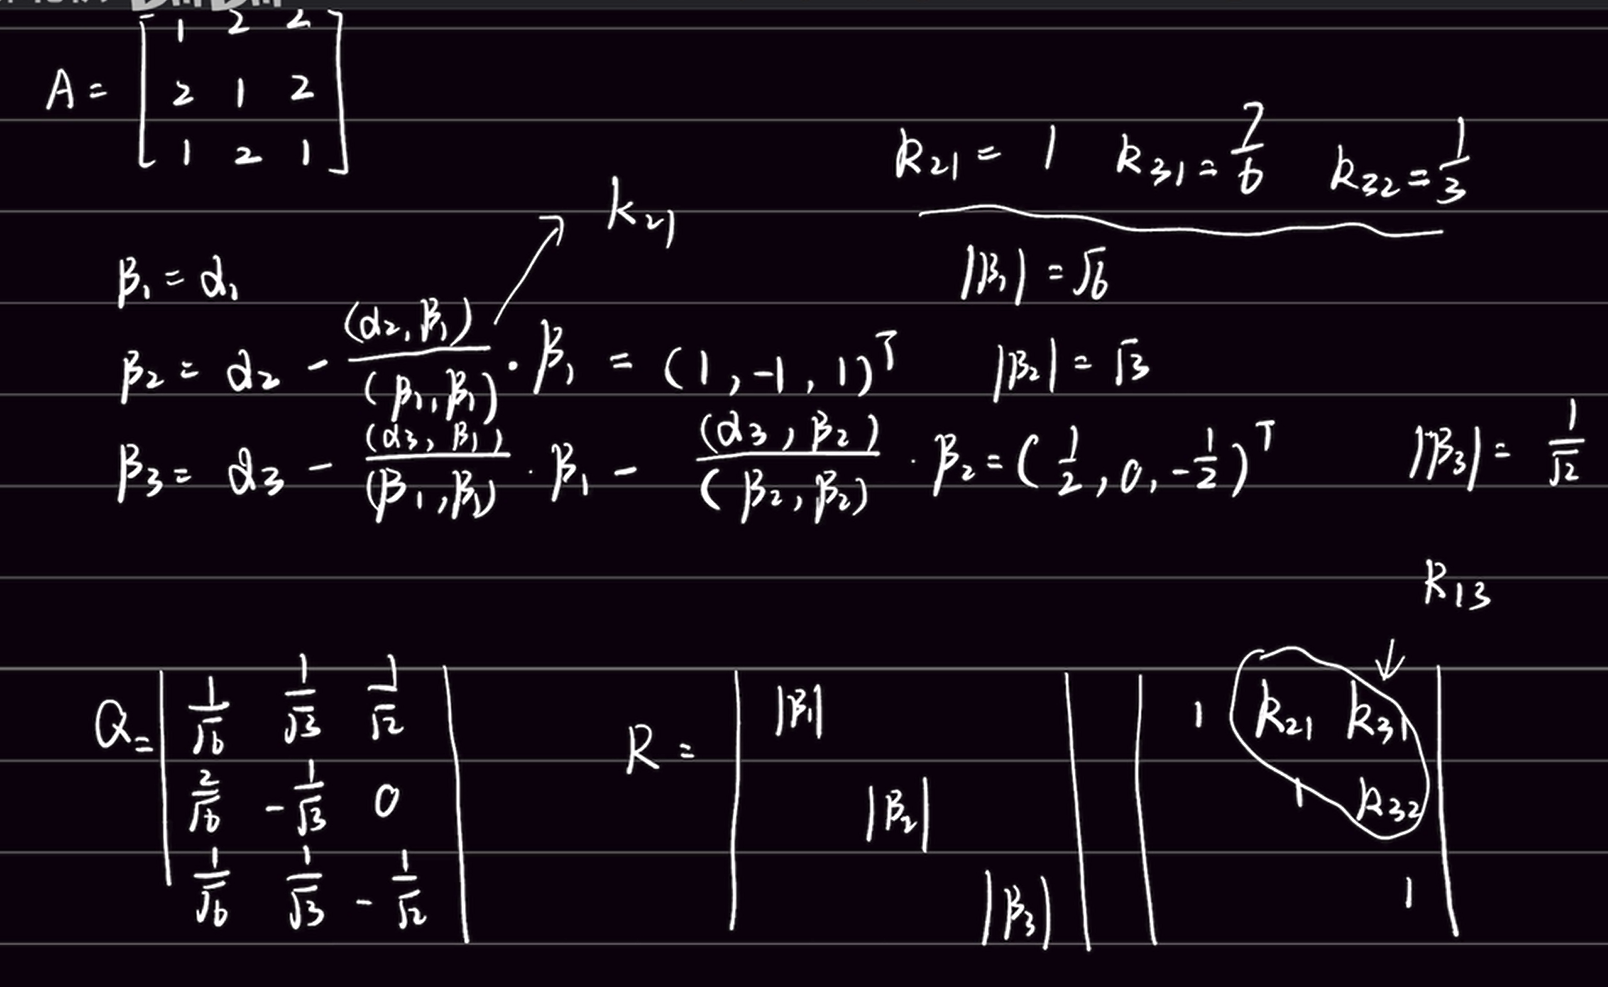 A = [ 1 2 2
2 1 2
1 2 1 ]
k₂₁ = 1 k₃₁ = 7/6 k₃₂ = 1/3
k₂₁
β₁ = α₁ |β₁| = √6
β₂ = α₂ - (α₂, β₁)/(β₁, β₁) · β₁ = (1, -1, 1)ᵀ |β₂| = √3
β₃ = α₃ - (α₃, β₁)/(β₁, β₁) · β₁ - (α₃, β₂)/(β₂, β₂) · β₂ = (1/2, 0, -1/2)ᵀ |β₃| = 1/√2
R₁₃
Q = | 1/√6 1/√3 1/√2 |
| 2/√6 -1/√3 0 |
| 1/√6 1/√3 -1/√2 |
R = | |β₁| | | 1 k₂₁ k₃₁ |
| |β₂| | | 1 k₃₂ |
| |β₃| | | 1 |